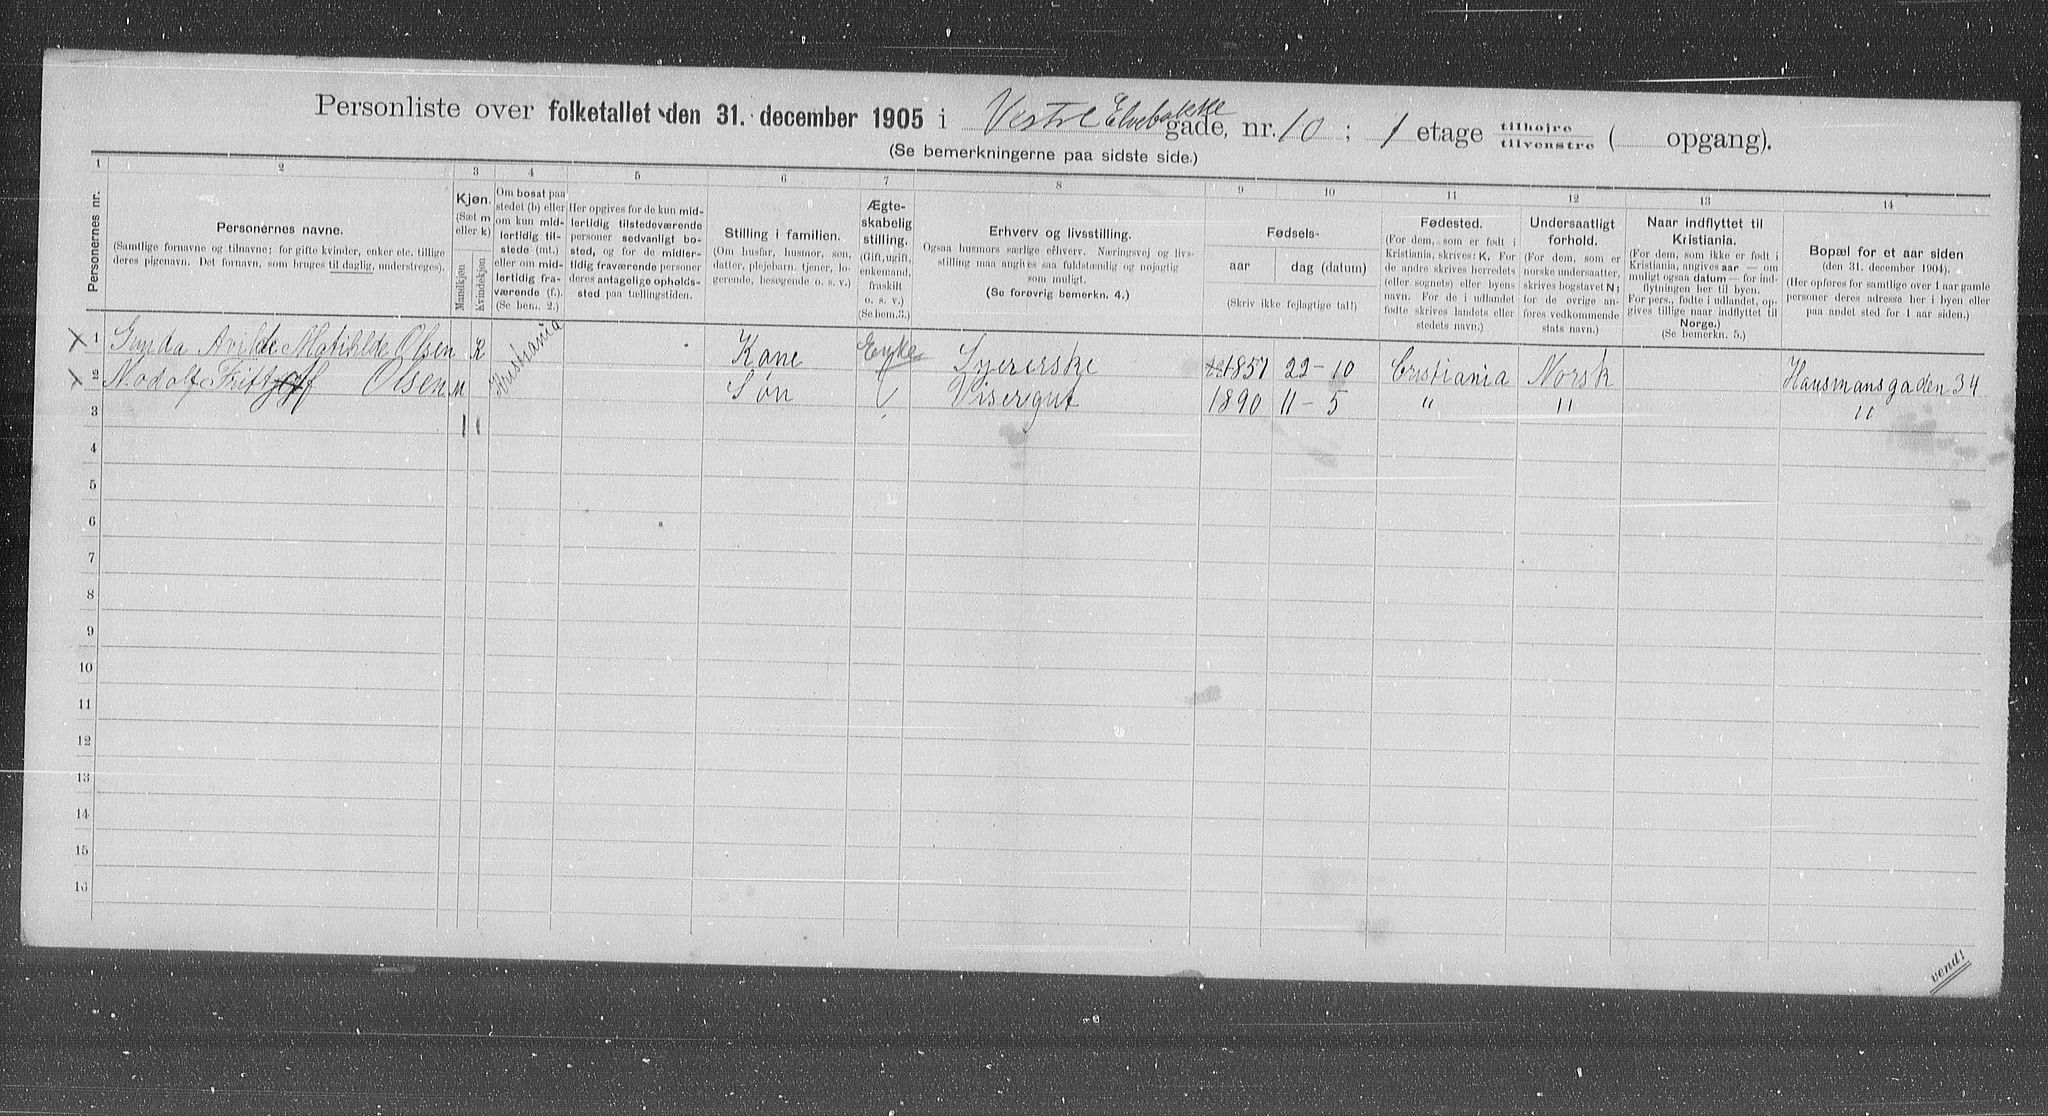 Personliste over folketallet den 31. december 1905 i Vestre Elvebakke gade, nr. 10 ; 1 etage tilhøjre tilvenstre ( opgang).
(Se bemerkningerne paa sidste side.)
1 2 3 4 5 6 7 8 9 10 11 12 13 14
Personernes nr.
Personernes navne.
(Samtlige fornavne og tilnavne; for gifte kvinder, enker etc. tillige
deres pigenavn. Det fornavn, som bruges til daglig, understreges).
Kjøn.
(Sæt m
eller k)
Mandkjøn
Kvindekjøn
Om bosat paa
stedet (b) eller
om kun mid-
lertidig til-
stede (mt.)
eller om mid-
lertidig fra-
værende (f.).
(Se bem. 2.)
Her opgives for de kun mid-
lertidig tilstedeværende
personer sedvanligt bo-
sted, og for de midler-
tidig fraværende personer
deres antagelige opholds-
sted paa tællingstiden.
Stilling i familien.
(Om husfar, husmor, søn,
datter, plejebarn, tjener, lo-
gerende, besøgende o. s. v.)
Ægte-
skabelig
stilling.
(Gift, ugift,
enkemand,
fraskilt
o. s. v.)
(Se bem.3.)
Erhverv og livsstilling.
Ogsaa husmors særlige erhverv. Næringsvej og livs-
stilling maa angives saa fuldstændig og nøjagtig
som muligt.
(Se forøvrig bemerkn. 4.)
Fødsels-
aar
dag (datum)
(Skriv ikke fejlagtige tal!)
Fødested.
(For dem, som er født i
Kristiania, skrives: K. For
de andre skrives herredets
(eller sognets) eller byens
navn. For de i udlandet
fødte skrives landets eller
stedets navn.)
Undersaatligt
forhold.
(For dem, som er
norske undersaatter,
skrives bogstavet N;
for de øvrige an-
føres vedkommende
stats navn.)
Naar indflyttet til
Kristiania.
(For dem, som ikke er født i
Kristiania, angives aar — om
muligt ogsaa datum — for ind-
flytningen her til byen.
For pers., fødte i udlandet, op-
gives tillige naar indflyttet til
Norge.)
(Se bemerkn. 5.)
Bopæl for et aar siden
(den 31. december 1904).
(Her opføres for samtlige over 1 aar gamle
personer deres adresse her i byen eller
paa andet sted for 1 aar siden.)
X 1 Gunda Avilde Matihlde Olsen K Kristiania Kone Enke Syererske 1851 22-10 Cristiania Norsk Hausmansgaden 34
X 2 Nodolf Olsen M Søn Visergut 1890 11-5 " " "
3 1 1
4
5
6
7
8
9
10
11
12
13
14
15
16
vend!